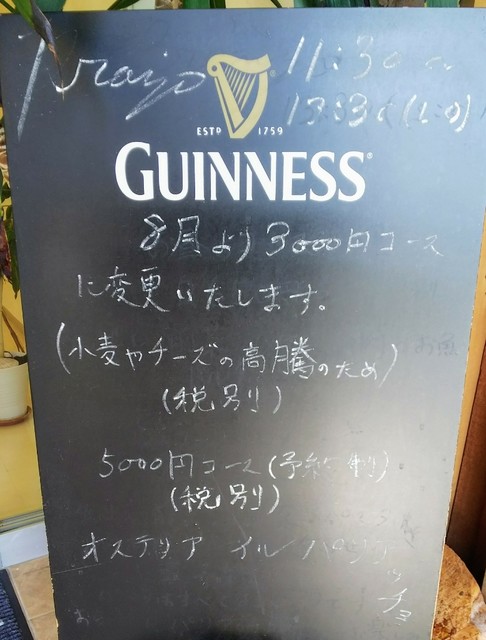 Pranzo 11:30~
13:33 (L.O)
ESTD 1759
GUINNESS
8月より3000円コース
に変更いたします。
(小麦やチーズの高騰のため)
(税別)
5000円コース(予約制)
(税別)
オステリア イル パジリッチョ